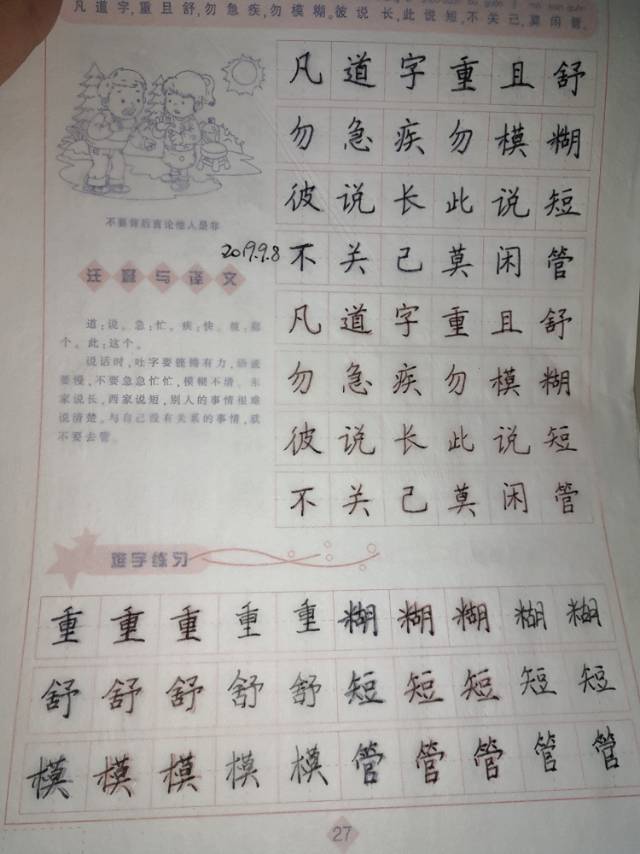 凡道字,重且舒,勿急疾,勿模糊。彼说长,此说短,不关己,莫闲管。
凡道字重且舒
勿急疾勿模糊
彼说长此说短
不关己莫闲管
凡道字重且舒
勿急疾勿模糊
彼说长此说短
不关己莫闲管
不要背后言论他人是非
2019.9.8
注解与译文
道:说。急:忙。疾:快。彼:那
个。此:这个。
说话时,吐字要铿锵有力,语速
要慢,不要急急忙忙,模糊不清。东
家说长,西家说短,别人的事情很难
说清楚。与自己没有关系的事情,就
不要去管。
难字练习
重重重重重糊糊糊糊糊
舒舒舒舒舒短短短短短
模模模模模管管管管管
27